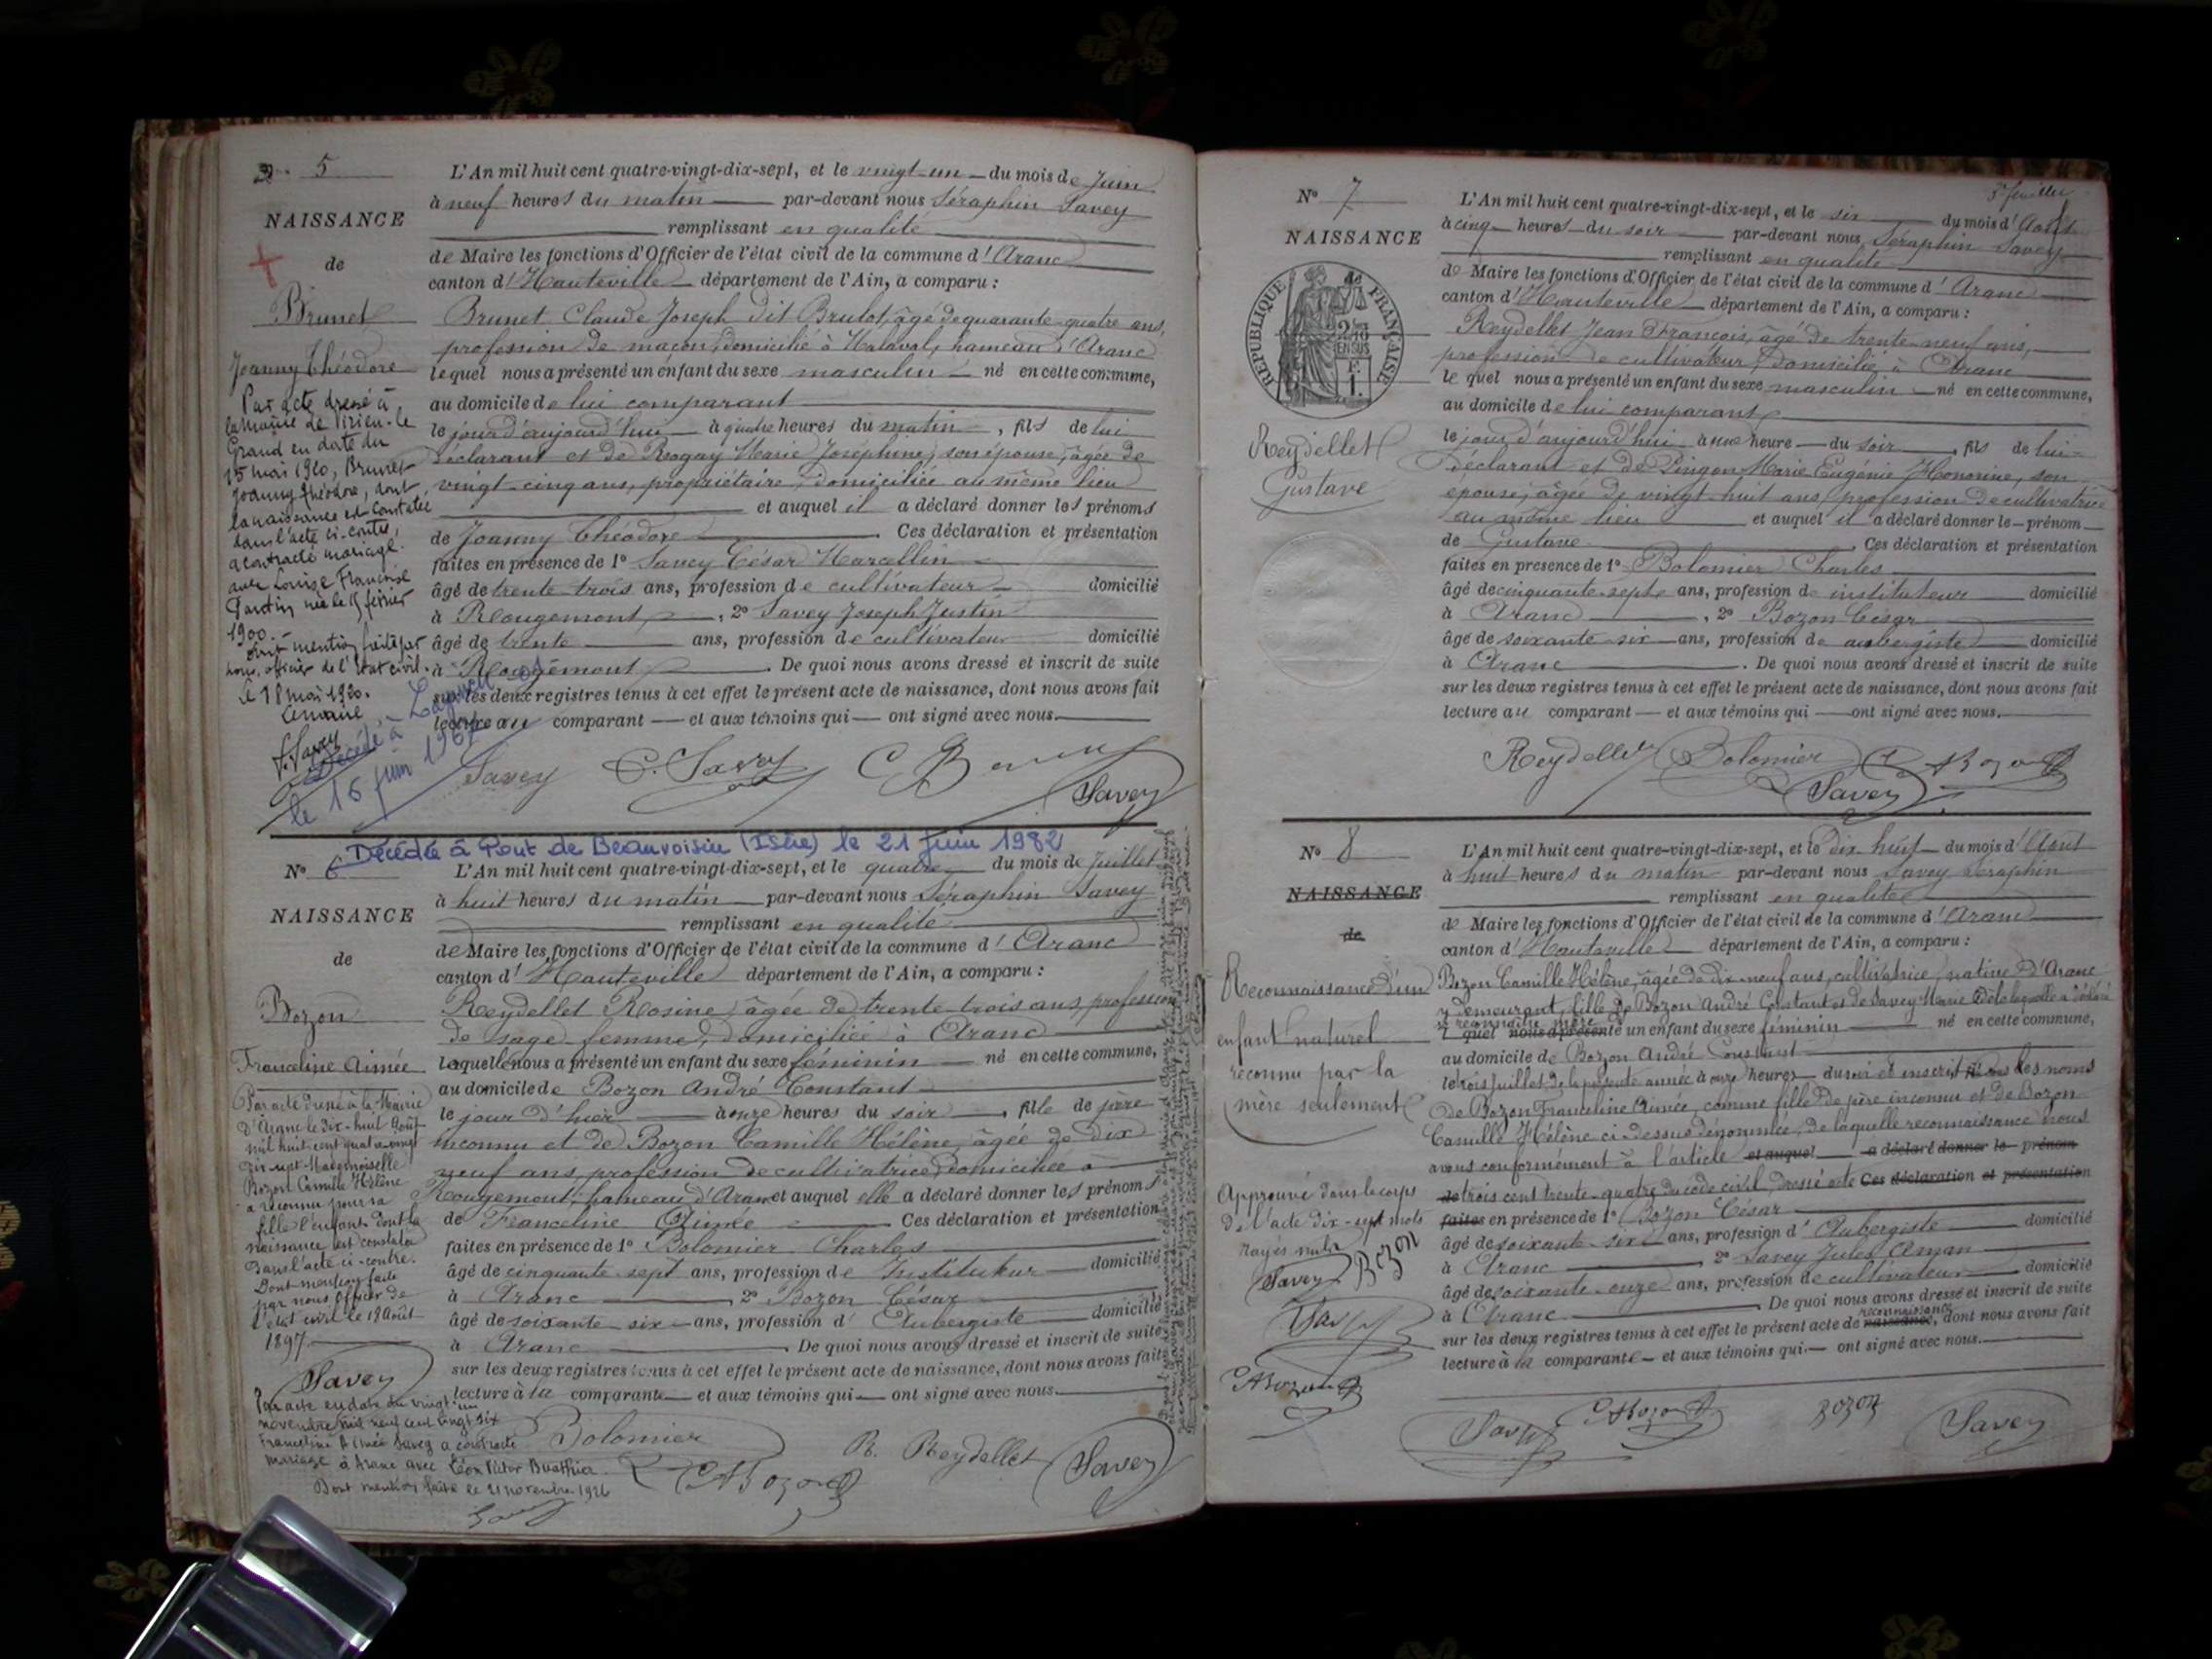 N° 5
NAISSANCE
de
Brunet
Joanny Théodore
Par acte dressé à
la Mairie de Virieu-le
Grand en date du
15 mai 1920, Brunet
Joanny Théodore, dont
la naissance est constatée
dans l'acte ci-contre,
a contracté mariage
avec Louise Françoise
née le 15 février
1900.
mention faite par
nous, officier de l'état civil.
le 18 mai 1920.
Le maire
Savey
Décédé à
le 16 juin 1967
L'An mil huit cent quatre-vingt-dix-sept, et le vingt-un du mois de Juin
à neuf heures du matin par-devant nous Séraphin Savey
remplissant en qualité
de Maire les fonctions d'Officier de l'état civil de la commune d'Aranc
canton d'Hauteville département de l'Ain, a comparu :
Brunet Claude Joseph dit Brulot, âgé de quarante-quatre ans,
profession de maçon, domicilié à Malaval, hameau d'Aranc
lequel nous a présenté un enfant du sexe masculin né en cette commune,
au domicile de lui comparant
le jour d'aujourd'hui à quatre heures du matin, fils de lui
déclarant et de Rogay Marie Joséphine, son épouse, âgée de
vingt-cinq ans, propriétaire, domiciliée au même lieu
et auquel il a déclaré donner les prénoms
de Joanny Théodore. Ces déclaration et présentation
faites en présence de 1° Savey César Marcellin
âgé de trente-trois ans, profession de cultivateur domicilié
à Rougemont, 2° Savey Joseph Justin
âgé de trente ans, profession de cultivateur domicilié
à Rougemont. De quoi nous avons dressé et inscrit de suite
sur les deux registres tenus à cet effet le présent acte de naissance, dont nous avons fait
lecture au comparant et aux témoins qui ont signé avec nous.
Savey C. Savey C Brunet
Savey
Décédée à Pont de Beauvoisin (Isère) le 21 Juin 1982
N° 6
NAISSANCE
de
Bozon
Franceline Aimée
Par acte dressé à la Mairie
d'Aranc le dix-huit Août
mil huit cent quatre-vingt
dix-sept Mademoiselle
Bozon Camille Hélène
a reconnu pour sa
fille l'enfant dont la
naissance est constatée
dans l'acte ci-contre.
Dont mention faite
par nous Officier de
l'état civil le 18 Août
1897
Savey
Par acte en date du vingt-un
novembre mil neuf cent vingt six
Franceline Aimée Savey a contracté
mariage à Aranc avec Léon Victor Buathier.
Dont mention faite le 21 novembre 1926
L'An mil huit cent quatre-vingt-dix-sept, et le quatre du mois de Juillet
à huit heures du matin par-devant nous Séraphin Savey
remplissant en qualité
de Maire les fonctions d'Officier de l'état civil de la commune d'Aranc
canton d'Hauteville département de l'Ain, a comparu :
Reydellet Rosine, âgée de trente-trois ans, profession
de sage-femme, domiciliée à Aranc
laquelle nous a présenté un enfant du sexe féminin né en cette commune,
au domicile de Bozon André Constant
le jour d'hier à onze heures du soir, fille de père
inconnu et de Bozon Camille Hélène, âgée de dix
neuf ans, profession de cultivatrice, domiciliée à
Rougemont, hameau d'Aranc et auquel elle a déclaré donner les prénoms
de Franceline Aimée. Ces déclaration et présentation
faites en présence de 1° Bolomier Charles
âgé de cinquante-sept ans, profession de Instituteur domicilié
à Aranc, 2° Bozon César
âgé de soixante-six ans, profession d'Aubergiste domicilié
à Aranc. De quoi nous avons dressé et inscrit de suite
sur les deux registres tenus à cet effet le présent acte de naissance, dont nous avons fait
lecture à la comparante et aux témoins qui ont signé avec nous.
Bolomier R. Reydellet Savey
C Bozon
3e feuillet
N° 7
NAISSANCE
de
RÉPUBLIQUE FRANÇAISE
2/10 EN SUS
Reydellet
Gustave
L'An mil huit cent quatre-vingt-dix-sept, et le six du mois d'Août
à cinq heures du soir par-devant nous Séraphin Savey
remplissant en qualité
de Maire les fonctions d'Officier de l'état civil de la commune d'Aranc
canton d'Hauteville département de l'Ain, a comparu :
Reydellet Jean François, âgé de trente-neuf ans,
profession de cultivateur, domicilié à Aranc
lequel nous a présenté un enfant du sexe masculin né en cette commune,
au domicile de lui comparant
le jour d'aujourd'hui à une heure du soir, fils de lui
déclarant et de Pingon Marie Eugénie Honorine, son
épouse, âgée de vingt-huit ans, profession de cultivatrice
au même lieu et auquel il a déclaré donner le prénom
de Gustave. Ces déclaration et présentation
faites en présence de 1° Bolomier Charles
âgé de cinquante-sept ans, profession de instituteur domicilié
à Aranc, 2° Bozon César
âgé de soixante-six ans, profession de aubergiste domicilié
à Aranc. De quoi nous avons dressé et inscrit de suite
sur les deux registres tenus à cet effet le présent acte de naissance, dont nous avons fait
lecture au comparant et aux témoins qui ont signé avec nous.
Reydellet Bolomier C Bozon
Savey
N° 8
NAISSANCE
de
Reconnaissance d'un
enfant naturel
reconnu par la
mère seulement
Approuvé dans le corps
de l'acte dix-sept mots
rayés nuls
Savey Bozon
Savey
C Bozon
L'An mil huit cent quatre-vingt-dix-sept, et le dix-huit du mois d'Août
à huit heures du matin par-devant nous Savey Séraphin
remplissant en qualité
de Maire les fonctions d'Officier de l'état civil de la commune d'Aranc
canton d'Hauteville département de l'Ain, a comparu :
Bozon Camille Hélène, âgée de dix-neuf ans, cultivatrice, native d'Aranc
y demeurant, fille de Bozon André Constant et de Savey Marie laquelle a déclaré
se reconnaître mère d'
l quel nous a présenté un enfant du sexe féminin né en cette commune,
au domicile de Bozon André Constant
le trois Juillet de la présente année à onze heures du soir et inscrit sous les noms
de Bozon Franceline Aimée, comme fille de père inconnu et de Bozon
Camille Hélène ci-dessus dénommée, de laquelle reconnaissance nous
avons conformément à l'article et auquel a déclaré donner le prénom
de trois cent trente-quatre du code civil, dressé acte Ces déclaration et présentation
faites en présence de 1° Bozon César
âgé de soixante-six ans, profession d'Aubergiste domicilié
à Aranc, 2° Savey Jules Aman
âgé de soixante-onze ans, profession de cultivateur domicilié
à Aranc. De quoi nous avons dressé et inscrit de suite
reconnaissance
sur les deux registres tenus à cet effet le présent acte de naissance, dont nous avons fait
lecture à la comparante et aux témoins qui ont signé avec nous.
Savey C Bozon Bozon Savey